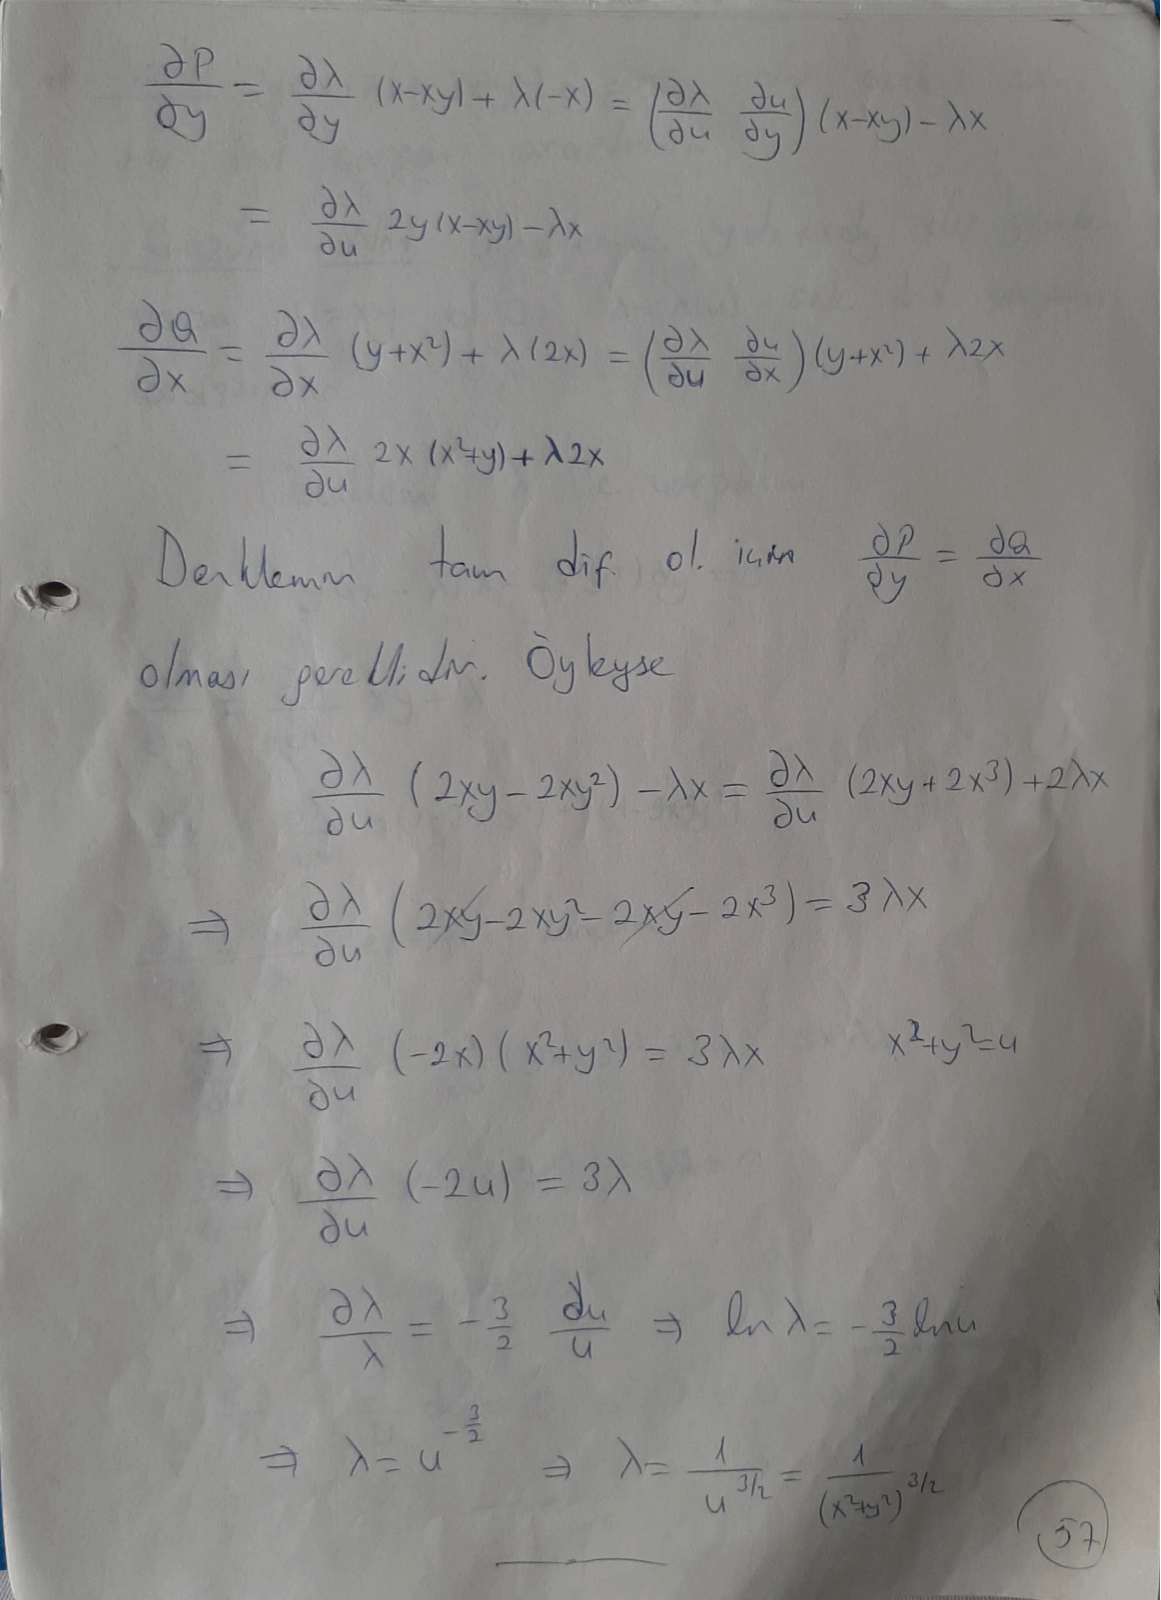 ∂P/∂y = ∂λ/∂y (x-xy) + λ(-x) = (∂λ/∂u ∂u/∂y) (x-xy) - λx
= ∂λ/∂u 2y(x-xy) - λx
∂Q/∂x = ∂λ/∂x (y+x²) + λ(2x) = (∂λ/∂u ∂u/∂x) (y+x²) + λ2x
= ∂λ/∂u 2x (x²+y) + λ2x
Denklemin tam dif. ol. için ∂P/∂y = ∂Q/∂x
olması gereklidir. Öyleyse
∂λ/∂u (2xy - 2xy²) - λx = ∂λ/∂u (2xy + 2x³) + 2λx
⇒ ∂λ/∂u (2xy - 2xy² - 2xy - 2x³) = 3λx
⇒ ∂λ/∂u (-2x) (x²+y²) = 3λx x²+y²=u
⇒ ∂λ/∂u (-2u) = 3λ
⇒ ∂λ/λ = -3/2 du/u ⇒ ln λ = -3/2 ln u
⇒ λ = u^(-3/2) ⇒ λ = 1/u^(3/2) = 1/(x²+y²)^(3/2)
57